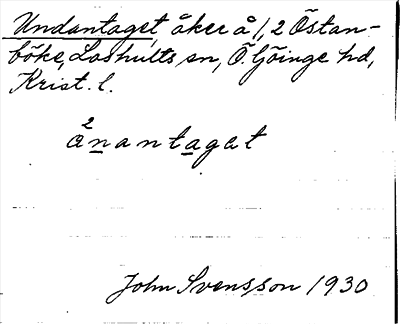 Undantaget, åker å 1,2 Östan-
böke, Loshults sn, Ö. Göinge hd,
Krist. l.
2
ånantagat
John Svensson 1930